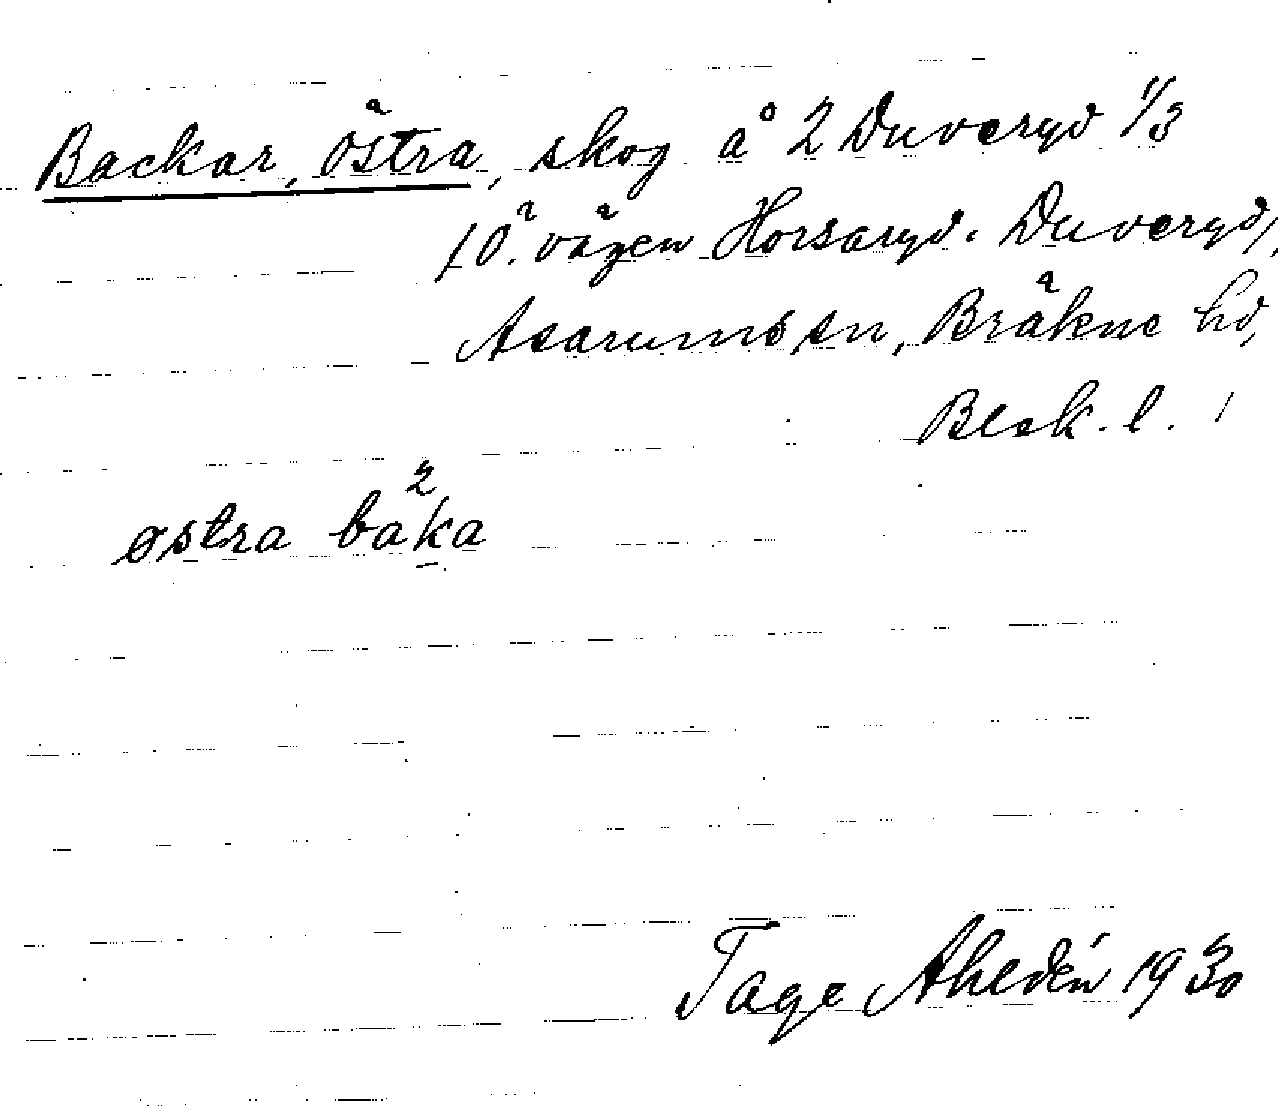 Backar, östra, skog å 2 Duveryd 1/3
/Ö. vägen Horsaryd. Duveryd/,
Asarums sn, Bräkne hd,
Blek. l.
østra baka
Tage Ahldén 1930